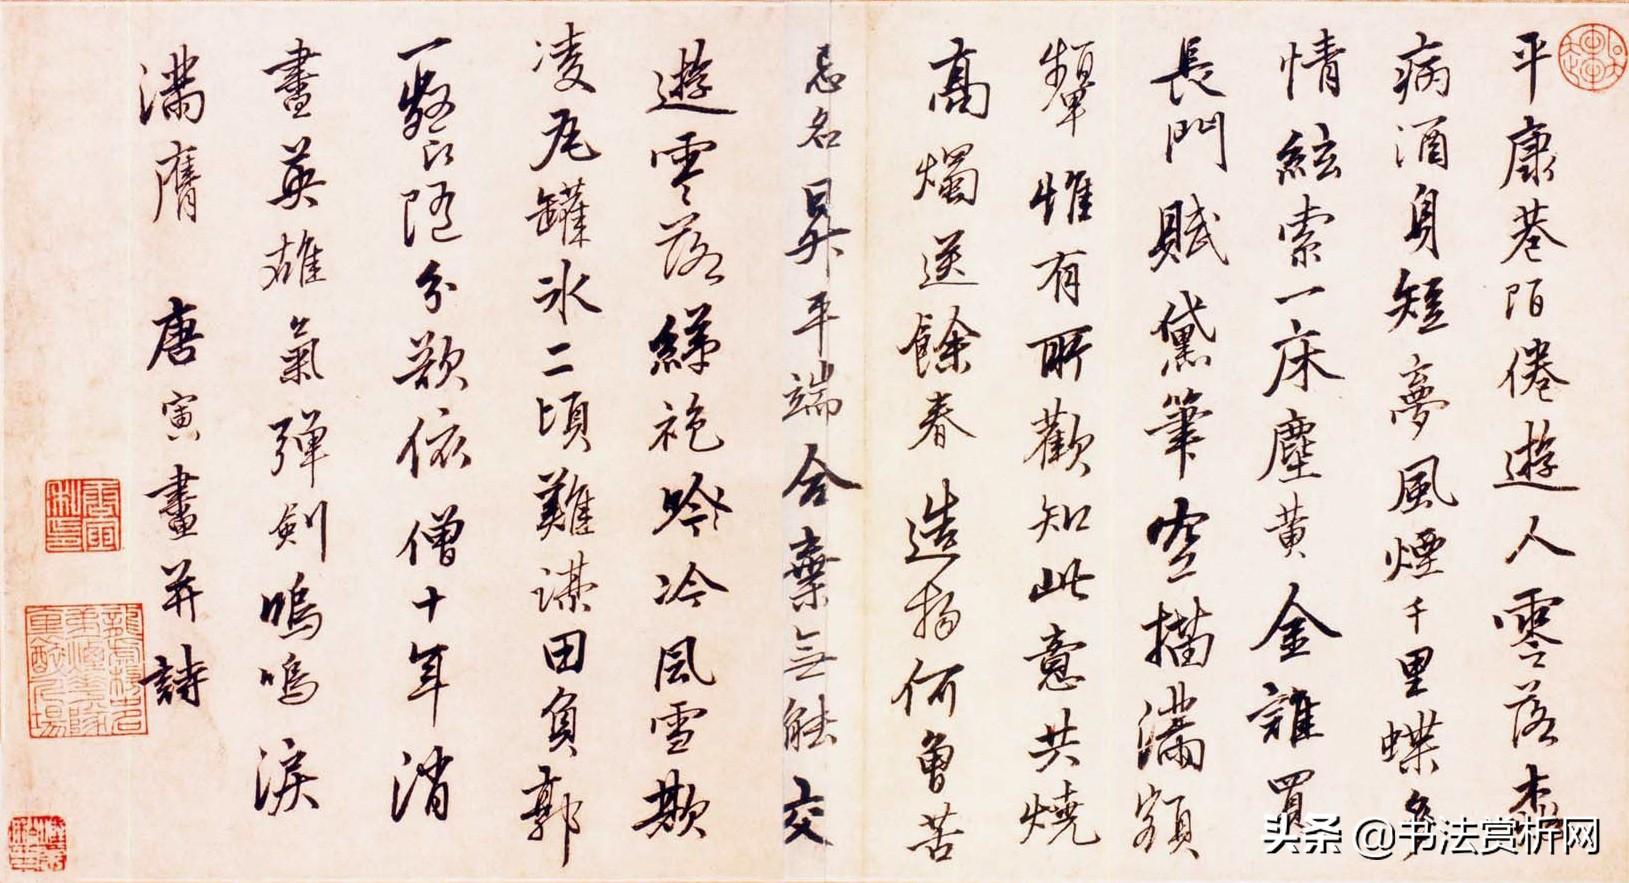 平康巷陌倦遊人零落
病酒身短夢風煙千里蝶多
情絃索一床塵黃金誰買
長門賦黛筆空描滿額
顰惟有所歡知此意共燒
高燭送餘春造物何曾苦
忌名昇平端合棄無能交
遊零落綈袍吟冷風雪欺
凌瓦罐冰二頃難謀田負郭
一隨分欲依僧十年消
盡英雄氣彈劍嗚嗚淚
滿膺 唐寅畫并詩
头条 @书法赏析网